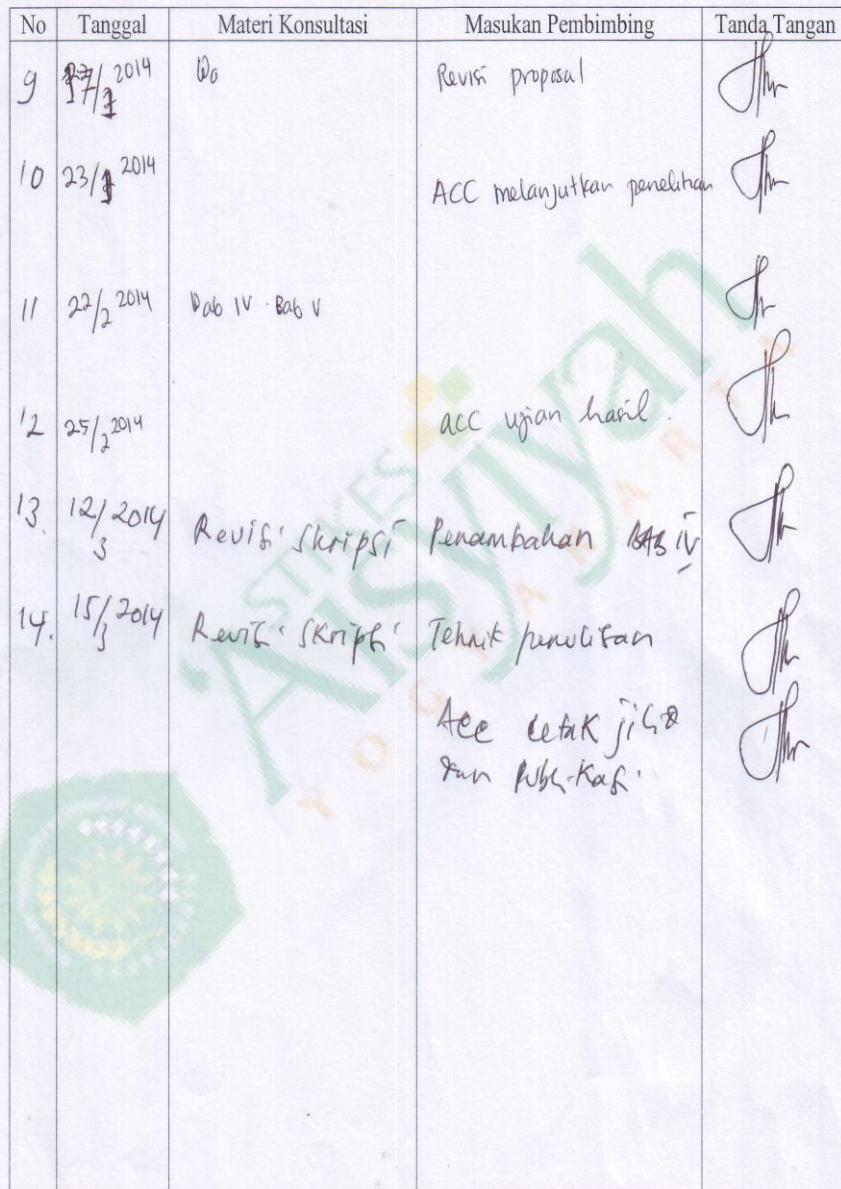 No Tanggal Materi Konsultasi Masukan Pembimbing Tanda Tangan
9 2014 Revisi proposal
10 23/1 2014 ACC melanjutkan penelitian
11 22/2 2014 Bab IV Bab V
12 25/2 2014 acc ujian hasil.
13. 12/3 2014 Revisi skripsi Penambahan BAB IV
14. 15/3 2014 Revisi skripsi Tehnik penulisan
Acc cetak jilid
dan publikasi
STIKES
'Aisyiyah
YOGYAKARTA